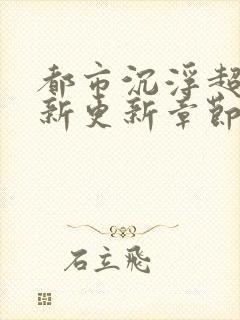 都市沉浮超
新更新章節
石立飛